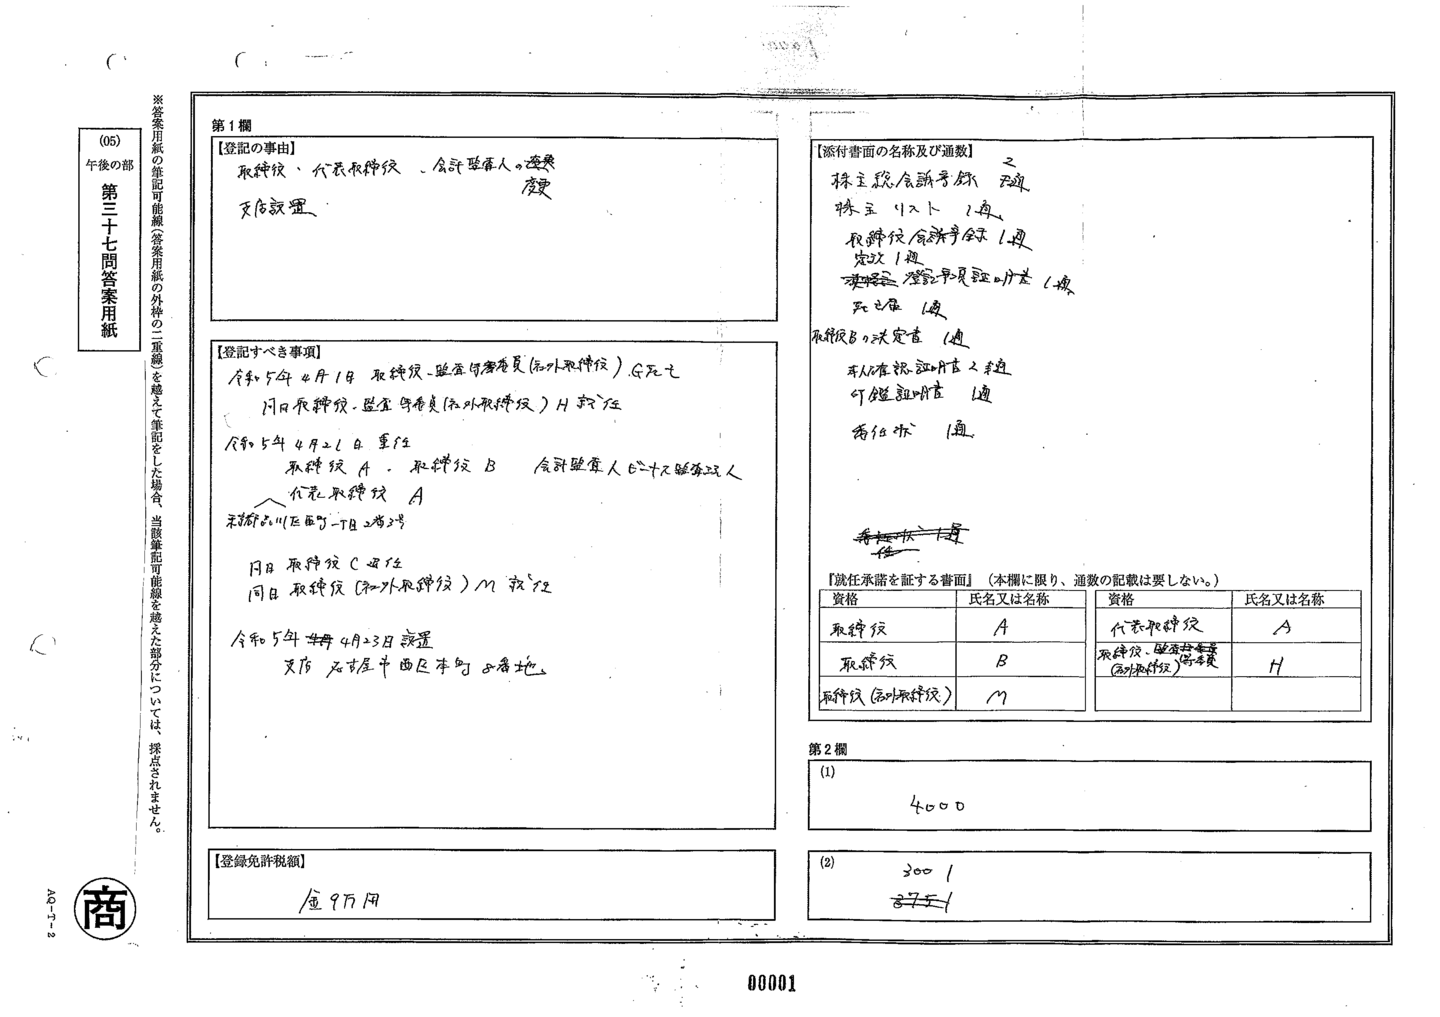 ※答案用紙の筆記可能線(答案用紙の外枠の二重線)を越えて筆記をした場合、当該筆記可能線を越えた部分については、採点されません。
(05)
午後の部
第三十七問答案用紙
商
AQ-T-2
第1欄
【登記の事由】
取締役、代表取締役、会計監査人の
変更
支店設置
【登記すべき事項】
令和5年4月1日 取締役・監査等委員(社外取締役)G死亡
同日取締役・監査等委員(社外取締役)H就任
令和5年4月21日 重任
取締役 A、取締役 B 会計監査人ビーナス監査法人
代表取締役 A
東京都品川区西町一丁目2番3号
同日 取締役 C 退任
同日 取締役(社外取締役)M 就任
令和5年 4月23日設置
支店 名古屋市西区本町8番地
【登録免許税額】
金9万円
【添付書面の名称及び通数】
株主総会議事録 2通
株主リスト 1通
取締役会議事録 1通
定款 1通
登記事項証明書 1通
死亡届 1通
取締役Bの決定書 1通
本人確認証明書 2通
印鑑証明書 1通
委任状 1通
『就任承諾を証する書面』(本欄に限り、通数の記載は要しない。)
資格 氏名又は名称 資格 氏名又は名称
取締役 A 代表取締役 A
取締役 B 取締役・監査等委員(社外取締役) H
取締役(社外取締役) M
第2欄
(1)
4000
(2)
3001
3751
00001